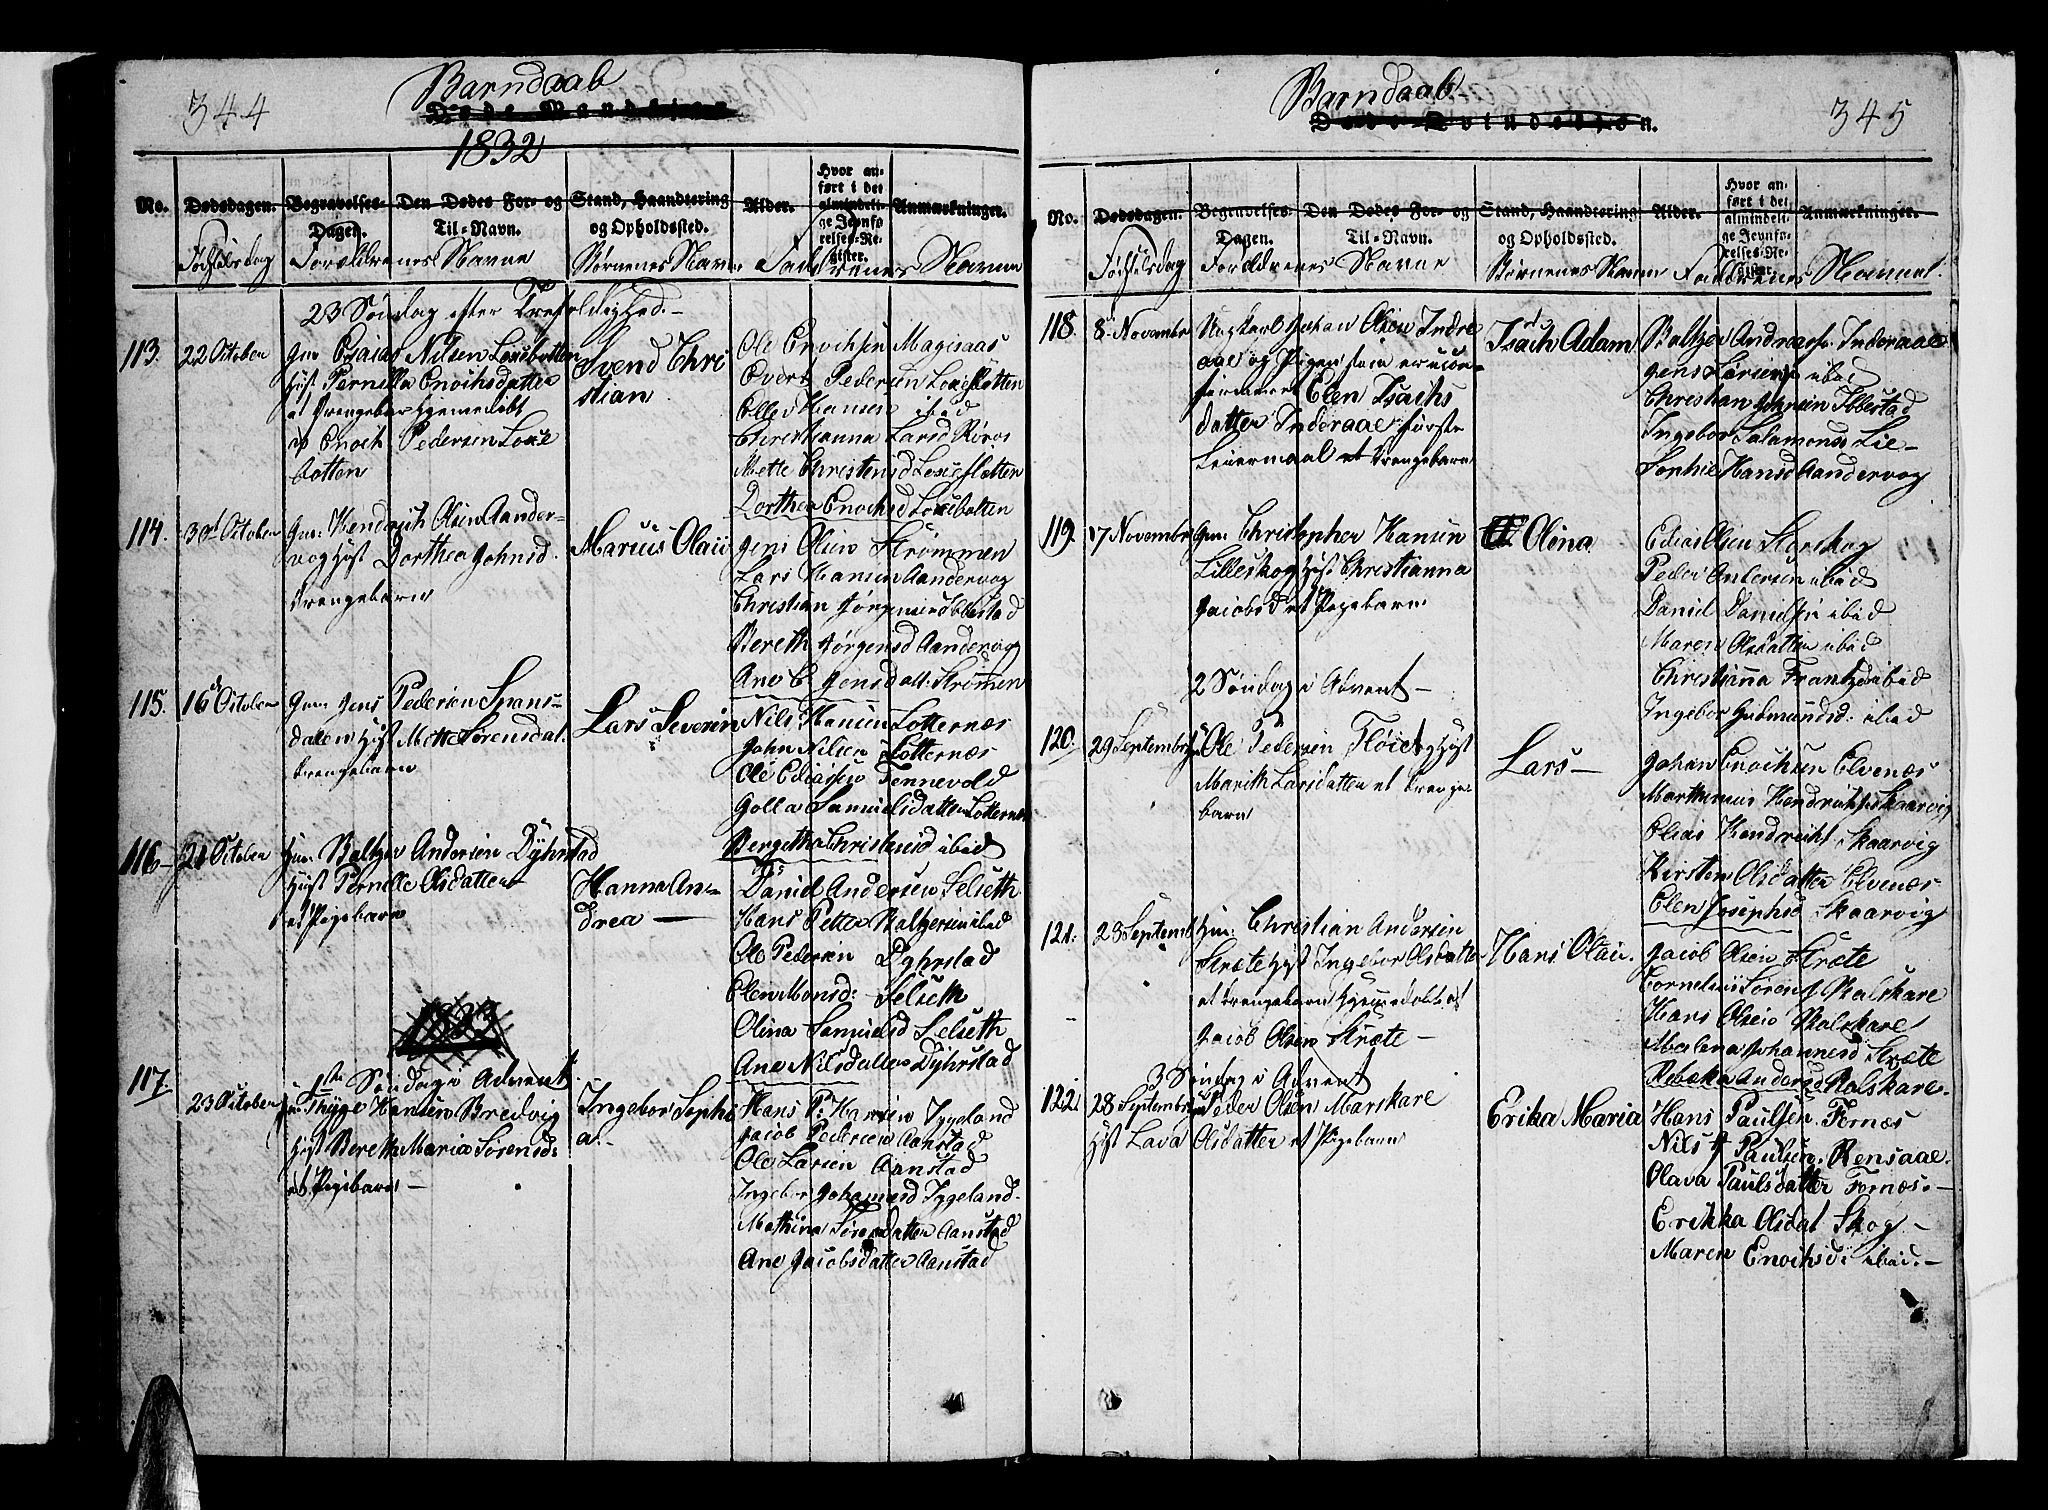 344
Barndaab
Døde Mandkiøn
1832
No.
Dødsdagen.
Begravelses-
Dagen.
Den Dødes For- og
Til-Navn.
Stand, Haandtering
og Opholdssted.
Alder.
Hvor an-
ført i det
almindeli-
ge Jevnfø-
relses-Re-
gister.
Anmærkninger.
Fødselsdag
Forældrenes Navne
Børnenes Navne
Faddrenes Navne
23 Søndag efter Trefoldighed.-
113.
22 October
Gm: Esaias Nilsen Loxebotten
Hust Pernilla Enochsdatter
et Drengebar Hjemedøbt
af Enoch Pedersen Loxe
botten
Svend Chri
stian
Ole Enochsen Magisaas
Evert Pedersen Loxeslotten
Elles Hansen ibid
Christianna Larsd Røros
Mette Christensd Loxeslotten
Dorthea Enochsd Loxebotten
114.
30d October
Gm: Hendrich Olsen Aander-
vog Hust Dorthea Johnsd.
Drengebarn
Marius Olaii
Jens Olsen Strømmen
Lars Hansen Aandervog
Christian Jørgensen Ibbestad
Bereth Jørgensd Aandervog
Ane E Jensdatt: Strømen
115.
16d October
Gm: Jens Pedersen Spans-
dalen Hust Mette Sørensdat.
Drengebarn
Lars Severin
Nils Hansen Lotternæs
John Nilsen Lotternæs
Ole Ediassen Tennevold
Golla Samuelsdatter Lotternæs
Bergitha Christensd ibid
116-
21 October
Hm: Baltzer Andersen Dyhrstad
Hust Pernelle Olsdatter
et Pigebarn
Hanna An-
drea —
Daniel Andersen Selseth
Hans Petter Baltzersen ibid
Ole Pedersen Dyhrstad
Elen Monsd: Selseth
Olina Samuelsd Selseth
Ane Nilsdatter Dyhrstad
1ste Søndag i Advent
117.
23 October
Gm: Thyge Hansen Bredvig
Hust Bereth Maria Sørensd:
et Pigebarn-
Ingebor Sophi
a.-
Hans P: Hansen Iggeland
Jacob Pedersen Aanstad
Ole Larsen Aanstad
Ingebor Johannesd Iggeland-
Mathina Sørensdatter Aanstad
Ane Jacobsdatter Aanstad
345
Barndaab-
Døde Qvindekiøn.
No.
Dødsdagen.
Begravelses-
Dagen.
Den Dødes For- og
Til-Navn.
Stand, Haandtering
og Opholdssted.
Alder.
Hvor an-
ført i det
almindeli-
ge Jevnfø-
relses-Re-
gister.
Anmærkninger.
Fødselsdag
Forældrenes Navne
Børnenes Navne
Faddrenes Navne.
118.
8d November
Ungkarl Johan Olsen Indre
aae og Pigen som er ucon-
firmeret Elen Isachs
datter Inderaae første
Leiermaal et Drengebarn
Isach Adam
Baltzer Andraess. Inderaae
Jens Larsen ibid
Christian Johnsen Ibbestad
Ingebor Salamonsd Lie-
Sophie Hansd Aandervog
119.
17 November
Gm: Christopher Hansen
Lilleskog Hust Christianna
Jacobsd et Pigebarn
Olina
Edias Olsen Storskog
Peder Andersen ibid
Daniel Danielsen ibid
Maren Olsdatter ibid
Christianna Frantzd ibid
Ingebor Gudmundsd: ibid
2 Søndag i Advent —
120.
29 September
Gm Ole Pedersen Fløiet Hust
Marith Larsdatter et Drenge-
barn
Lars —
Johan Enochsen Elvenæs
Marthinus Hendrichs: Skaarvig
Elias Hendrichs: Skaarvig
Kirsten Olsdatter Elvenæs
Elen Josephsd Skaarvig
121.
23 Septemb
Hm: Christian Andersen
Kræte Hust Ingebor Olsdatter
et Drengebarn Hjemedøbt af
Jacob Olsen Kræte -
Hans Olaii.
Jacob Olsen Kræte
Cornelius Sørens: Kalskare
Hans Olsen Kalskare
Malena Johannesd Kræte
Rebekka Andersd Kalskare.
3 Søndag i Advent
122.
28 September
Gm Peder Olsen Marskare
Hust Lava Olsdatter et Pigebarn
Erika Maria
Hans Paulsen. Fornæs
Nils Paulsen. Rensaae.
Olava Paulsdatter Fornæs.-
Erikka Olsdat Skog -
Maren Enochsd: ibid.-